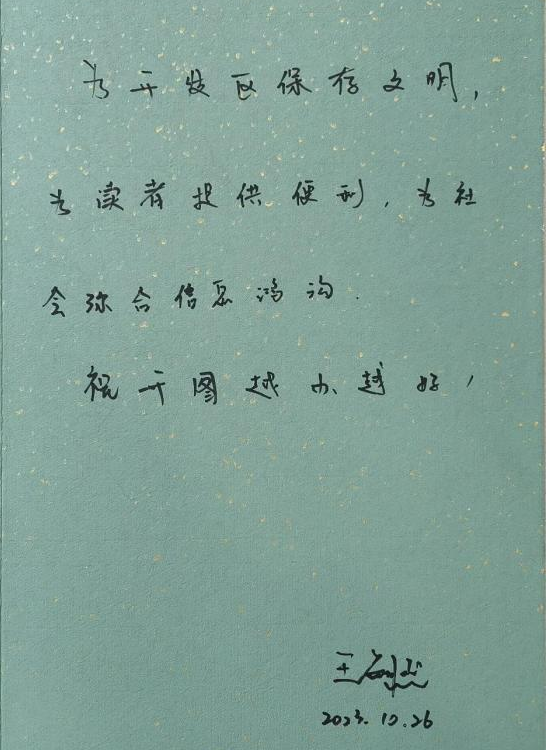 为开发区保存文明,
为读者提供便利,为社
会弥合信息鸿沟.
祝开图越办越好!
王
2023.10.26